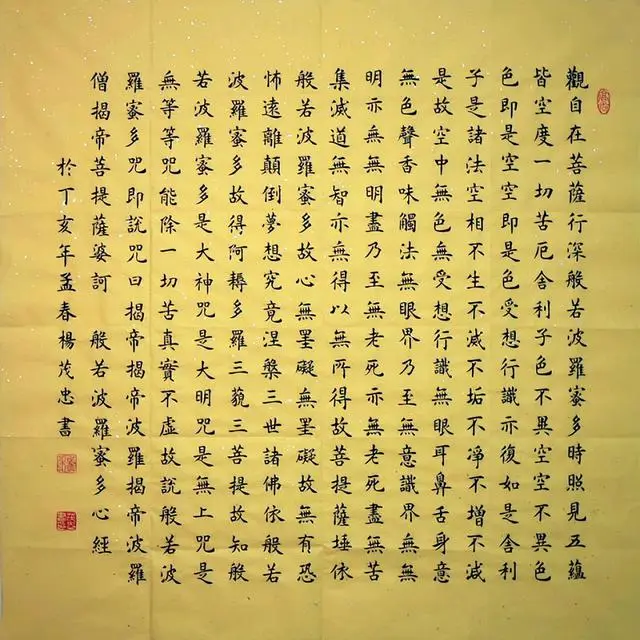 觀自在菩薩行深般若波羅蜜多時照見五蘊
皆空度一切苦厄舍利子色不異空空不異色
色即是空空即是色受想行識亦復如是舍利
子是諸法空相不生不滅不垢不淨不增不減
是故空中無色無受想行識無眼耳鼻舌身意
無色聲香味觸法無眼界乃至無意識界無無
明亦無無明盡乃至無老死亦無老死盡無苦
集滅道無智亦無得以無所得故菩提薩埵依
般若波羅蜜多故心無罣礙無罣礙故無有恐
怖遠離顛倒夢想究竟涅槃三世諸佛依般若
波羅蜜多故得阿耨多羅三藐三菩提故知般
若波羅蜜多是大神咒是大明咒是無上咒是
無等等咒能除一切苦真實不虛故說般若波
羅蜜多咒即說咒曰揭帝揭帝波羅揭帝波羅
僧揭帝菩提薩婆訶 般若波羅蜜多心經
於丁亥年孟春楊茂忠書